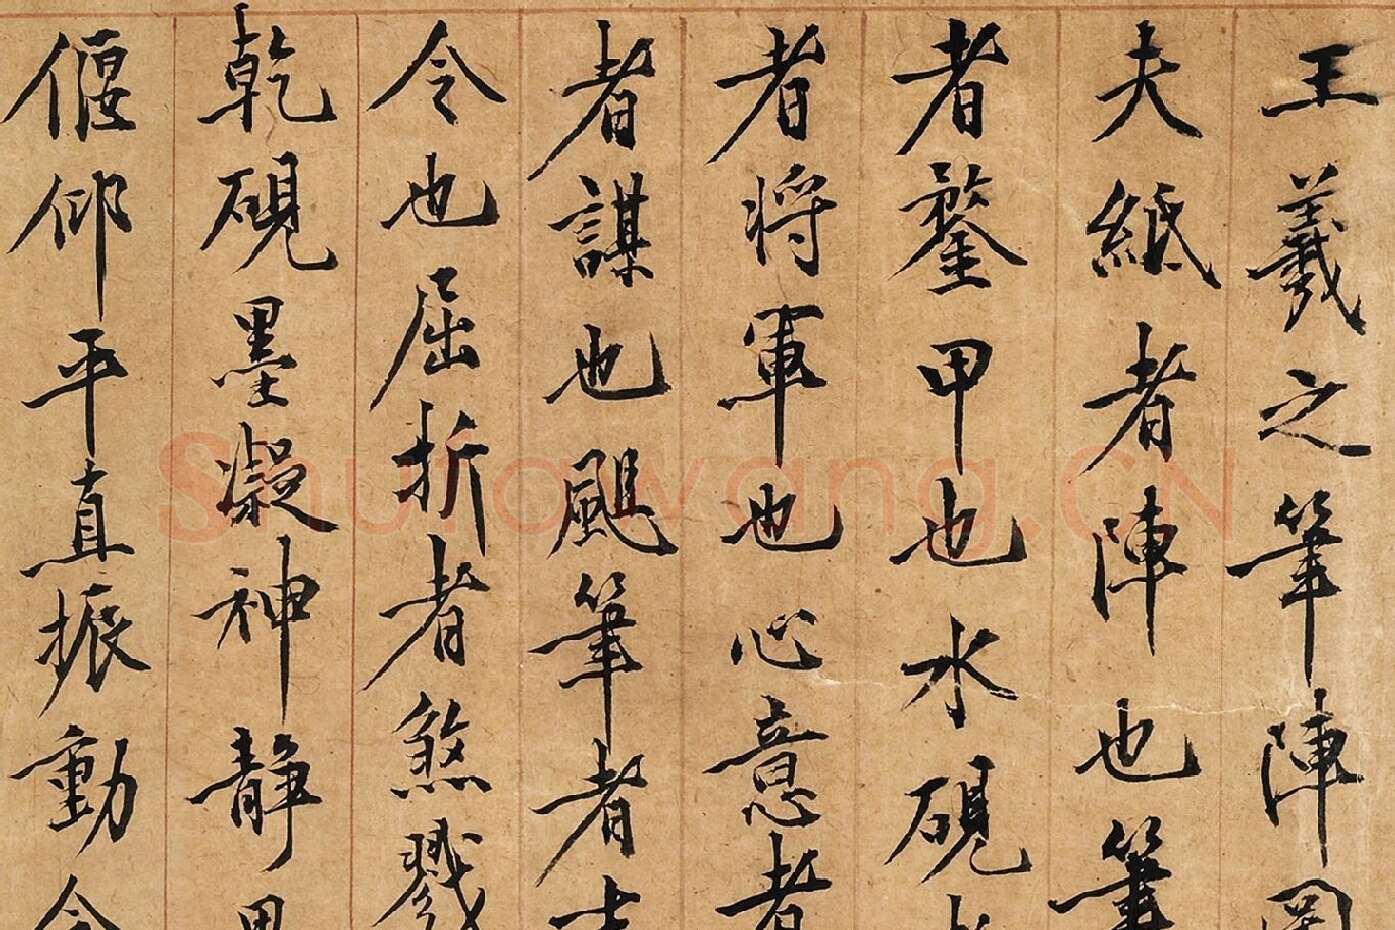 王羲之筆陣
夫紙者陣也筆
者鍪甲也水硯
者将軍也心意者
者謀也颶筆者
令也屈折者煞戮
乾硯墨凝神静
偃仰平直振動
Shufawang.CN